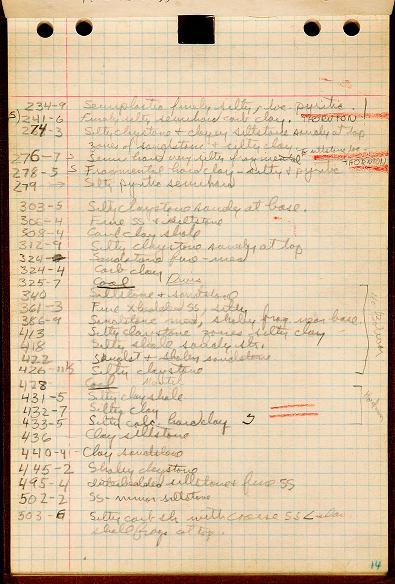 234-9 Semiplastic finely silty, loc. pyritic.
S) 241-6 Finely silty semihard carb clay. THORNTON
274-3 Silty claystone & clayey siltstone sandy at top
zones of sandstone & silty clay
276-7 S Semi hard very silty fragmental
278-5 S Fragmental hard clay - silty & pyritic THORNTON
279 Silty pyritic semihard
303-5 Silty claystone sandy at base.
306-4 Fine SS & siltstone
308-4 Carb clay shale
312-9 Silty claystone sandy at top
324 Sandstone fine-med
324-4 Carb clay
325-7 Coal Davis
340 Siltstone & sandstone
361-3 Fine xbedded SS, silty
386-9 Sandstone med, shaley frag near base
413 Silty claystone zones silty clay
418 Silty shale sandy
422 & shaley sandstone
426 Silty claystone
428 Coal
431-5 Silty clay shale
432-7 Silty clay
433-5 Silty calc hard clay S
436 Clay siltstone
440-4 Clay sandstone
445-2 Shaley claystone
495-4 Interbedded siltstone & fine SS
502-2 SS - minor siltstone
503-6 Silty carb sh with coarse SS &
shell frags at top.
14